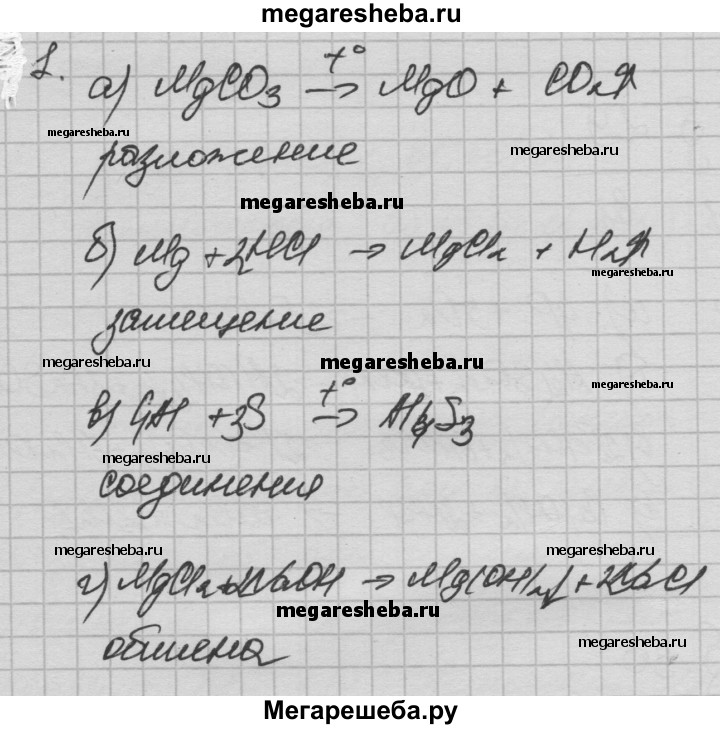 megaresheba.ru
1. а) MgCO3 t° → MgO + CO2↑
megaresheba.ru
разложение megaresheba.ru
megaresheba.ru
б) Mg + 2HCl → MgCl2 + H2↑
megaresheba.ru
замещение
megaresheba.ru megaresheba.ru
megaresheba.ru
в) Al + 3S t° → S3
megaresheba.ru
соединения
megaresheba.ru megaresheba.ru
г) MgCl2 + NaOH → Mg(OH)2↓ + 2NaCl
megaresheba.ru
обмена megaresheba.ru
Мегарешеба.ру